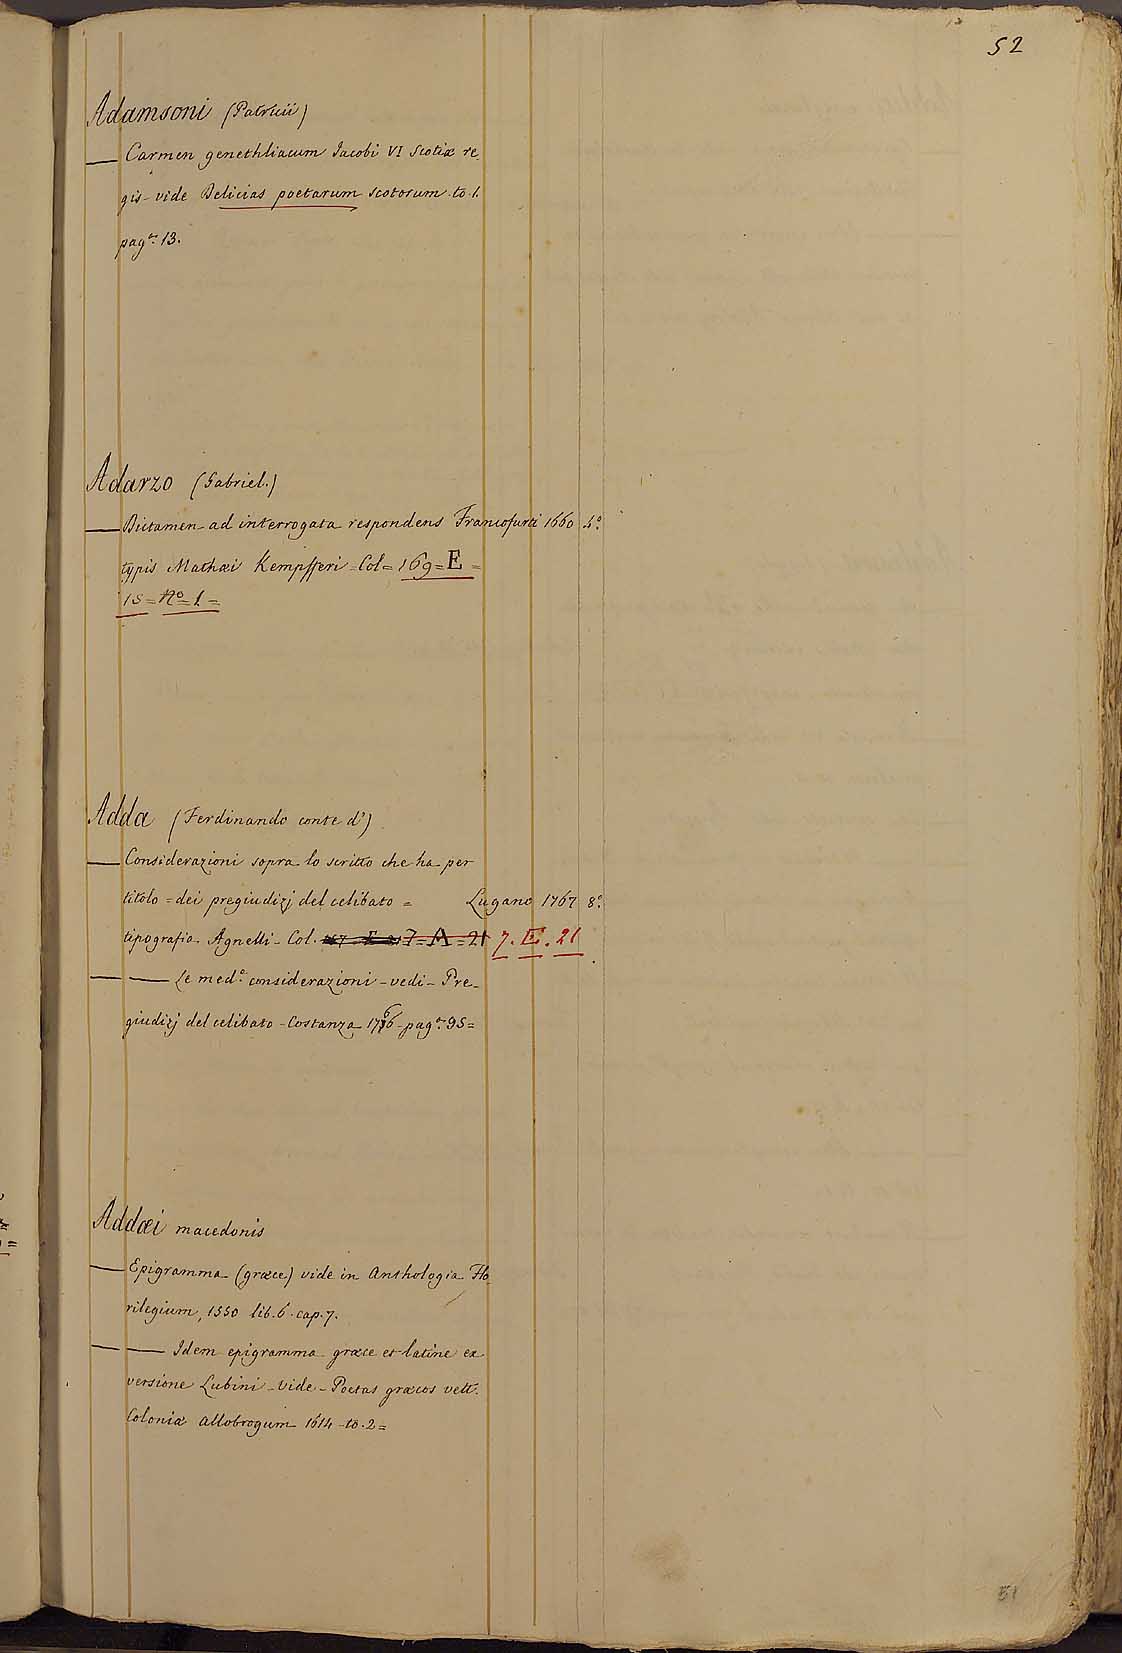 52
Adamsoni (Patricii)
— Carmen genethliacum Jacobi VI Scotiæ re-
gis - vide Delicias poetarum scotorum to. 1.
pag.ª 13.
Adarzo (Gabriel.)
— Dictamen ad interrogata respondens Francofurti 1660 4.º
typis Mathæi Kempfferi = Col = 169 = E =
15 = Nº = 1 =
Adda (Ferdinando conte d')
— Considerazioni sopra lo scritto che ha per
titolo = dei pregiudizj del celibato = Lugano 1767 8.º
tipografia Agnelli - Col. 7 = A = 21 7. E. 21
— — Le med.e considerazioni - vedi - Pre-
giudizj del celibato - Costanza 1766 - pag.ª 95 =
Addæi macedonis
— Epigramma (græce) vide in Anthologia Flo-
rilegium, 1550 lib. 6. cap. 7.
— — Idem epigramma græce et latine ex
versione Lubini - Vide - Poetas græcos vett.
Coloniæ allobrogum 1614 - to. 2 =
51